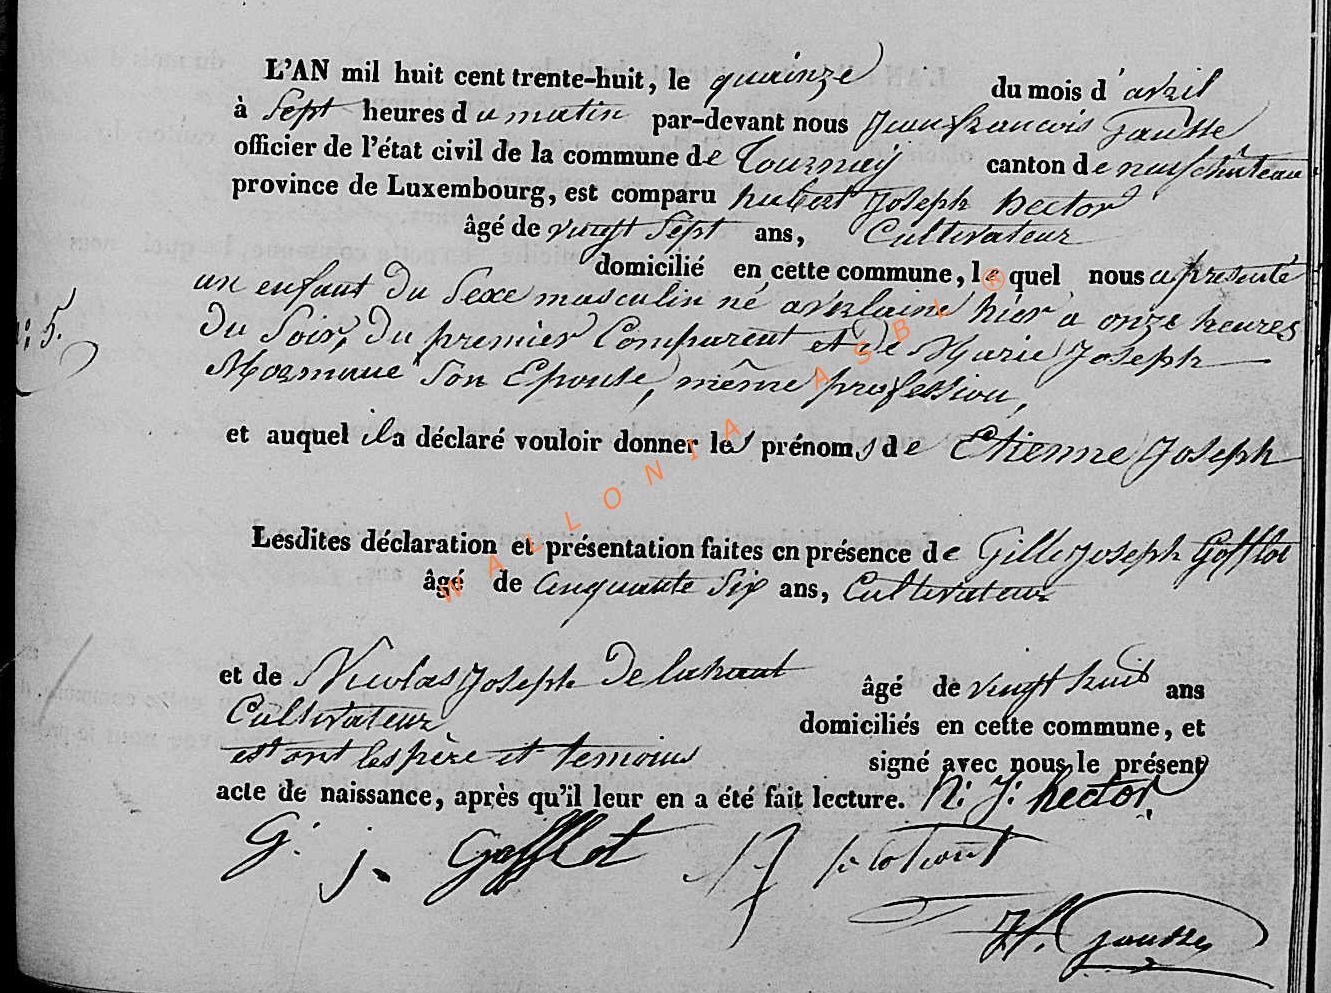 L'AN mil huit cent trente-huit, le quinze du mois d'avril
à Sept heures du matin par-devant nous Jean françois Gausse
officier de l'état civil de la commune de Tournay canton de neufchâteau
province de Luxembourg, est comparu hubert Joseph hector
âgé de vingt Sept ans, Cultivateur
domicilié en cette commune, lequel nous a présenté
un enfant du Sexe masculin né hier à onze heures
du Soir, du premier Comparent et de Marie Joseph
Son Epouse, même profession,
N: 5.
et auquel il a déclaré vouloir donner les prénoms de Etienne Joseph
Lesdites déclaration et présentation faites en présence de Gille Joseph Gofflot
âgé de cinquante Six ans, Cultivateur
et de Nicolas Joseph Delahaut âgé de vingt huit ans
Cultivateur domiciliés en cette commune, et
est ont les père et temoins signé avec nous le présent
acte de naissance, après qu'il leur en a été fait lecture. h: J: hector
G. j. Gofflot
J f. Gausse
WALLONIA ASBL ®